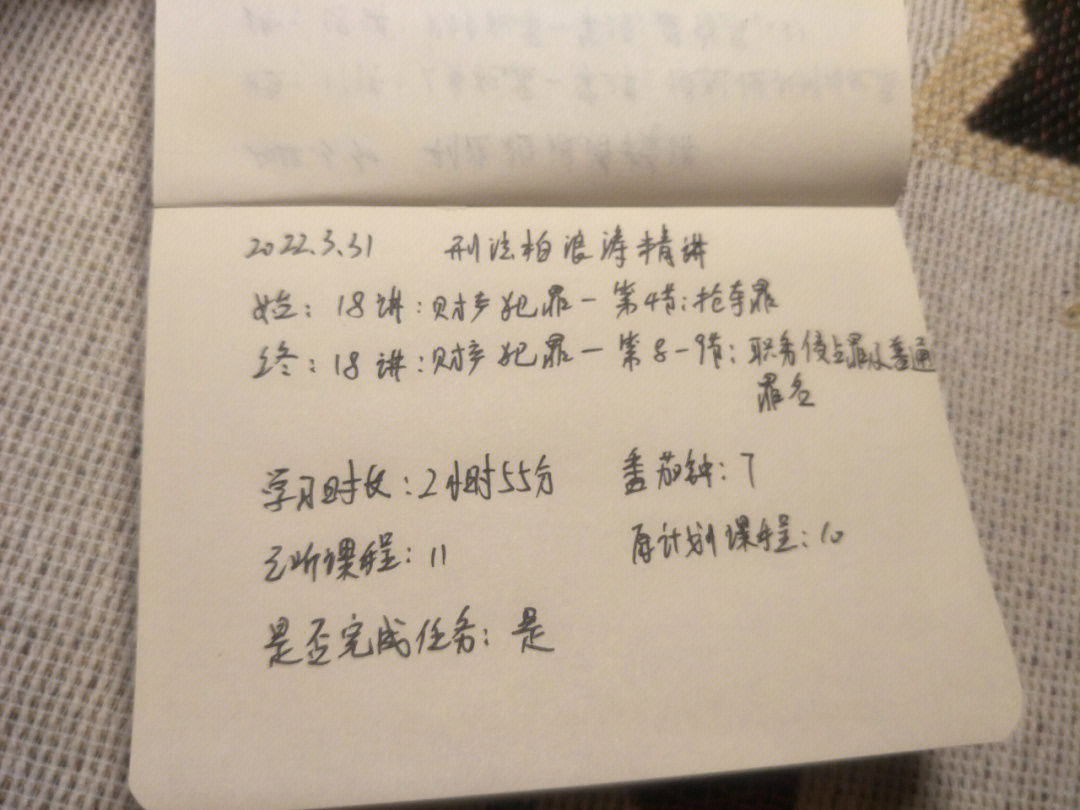 2022.3.31 刑法柏浪涛精讲
始：18讲：财产犯罪—第4节：抢夺罪
终：18讲：财产犯罪—第8-9节：职务侵占罪及普通
罪名
学习时长：2小时55分 番茄钟：7
已听课程：11 原计划课程：10
是否完成任务：是